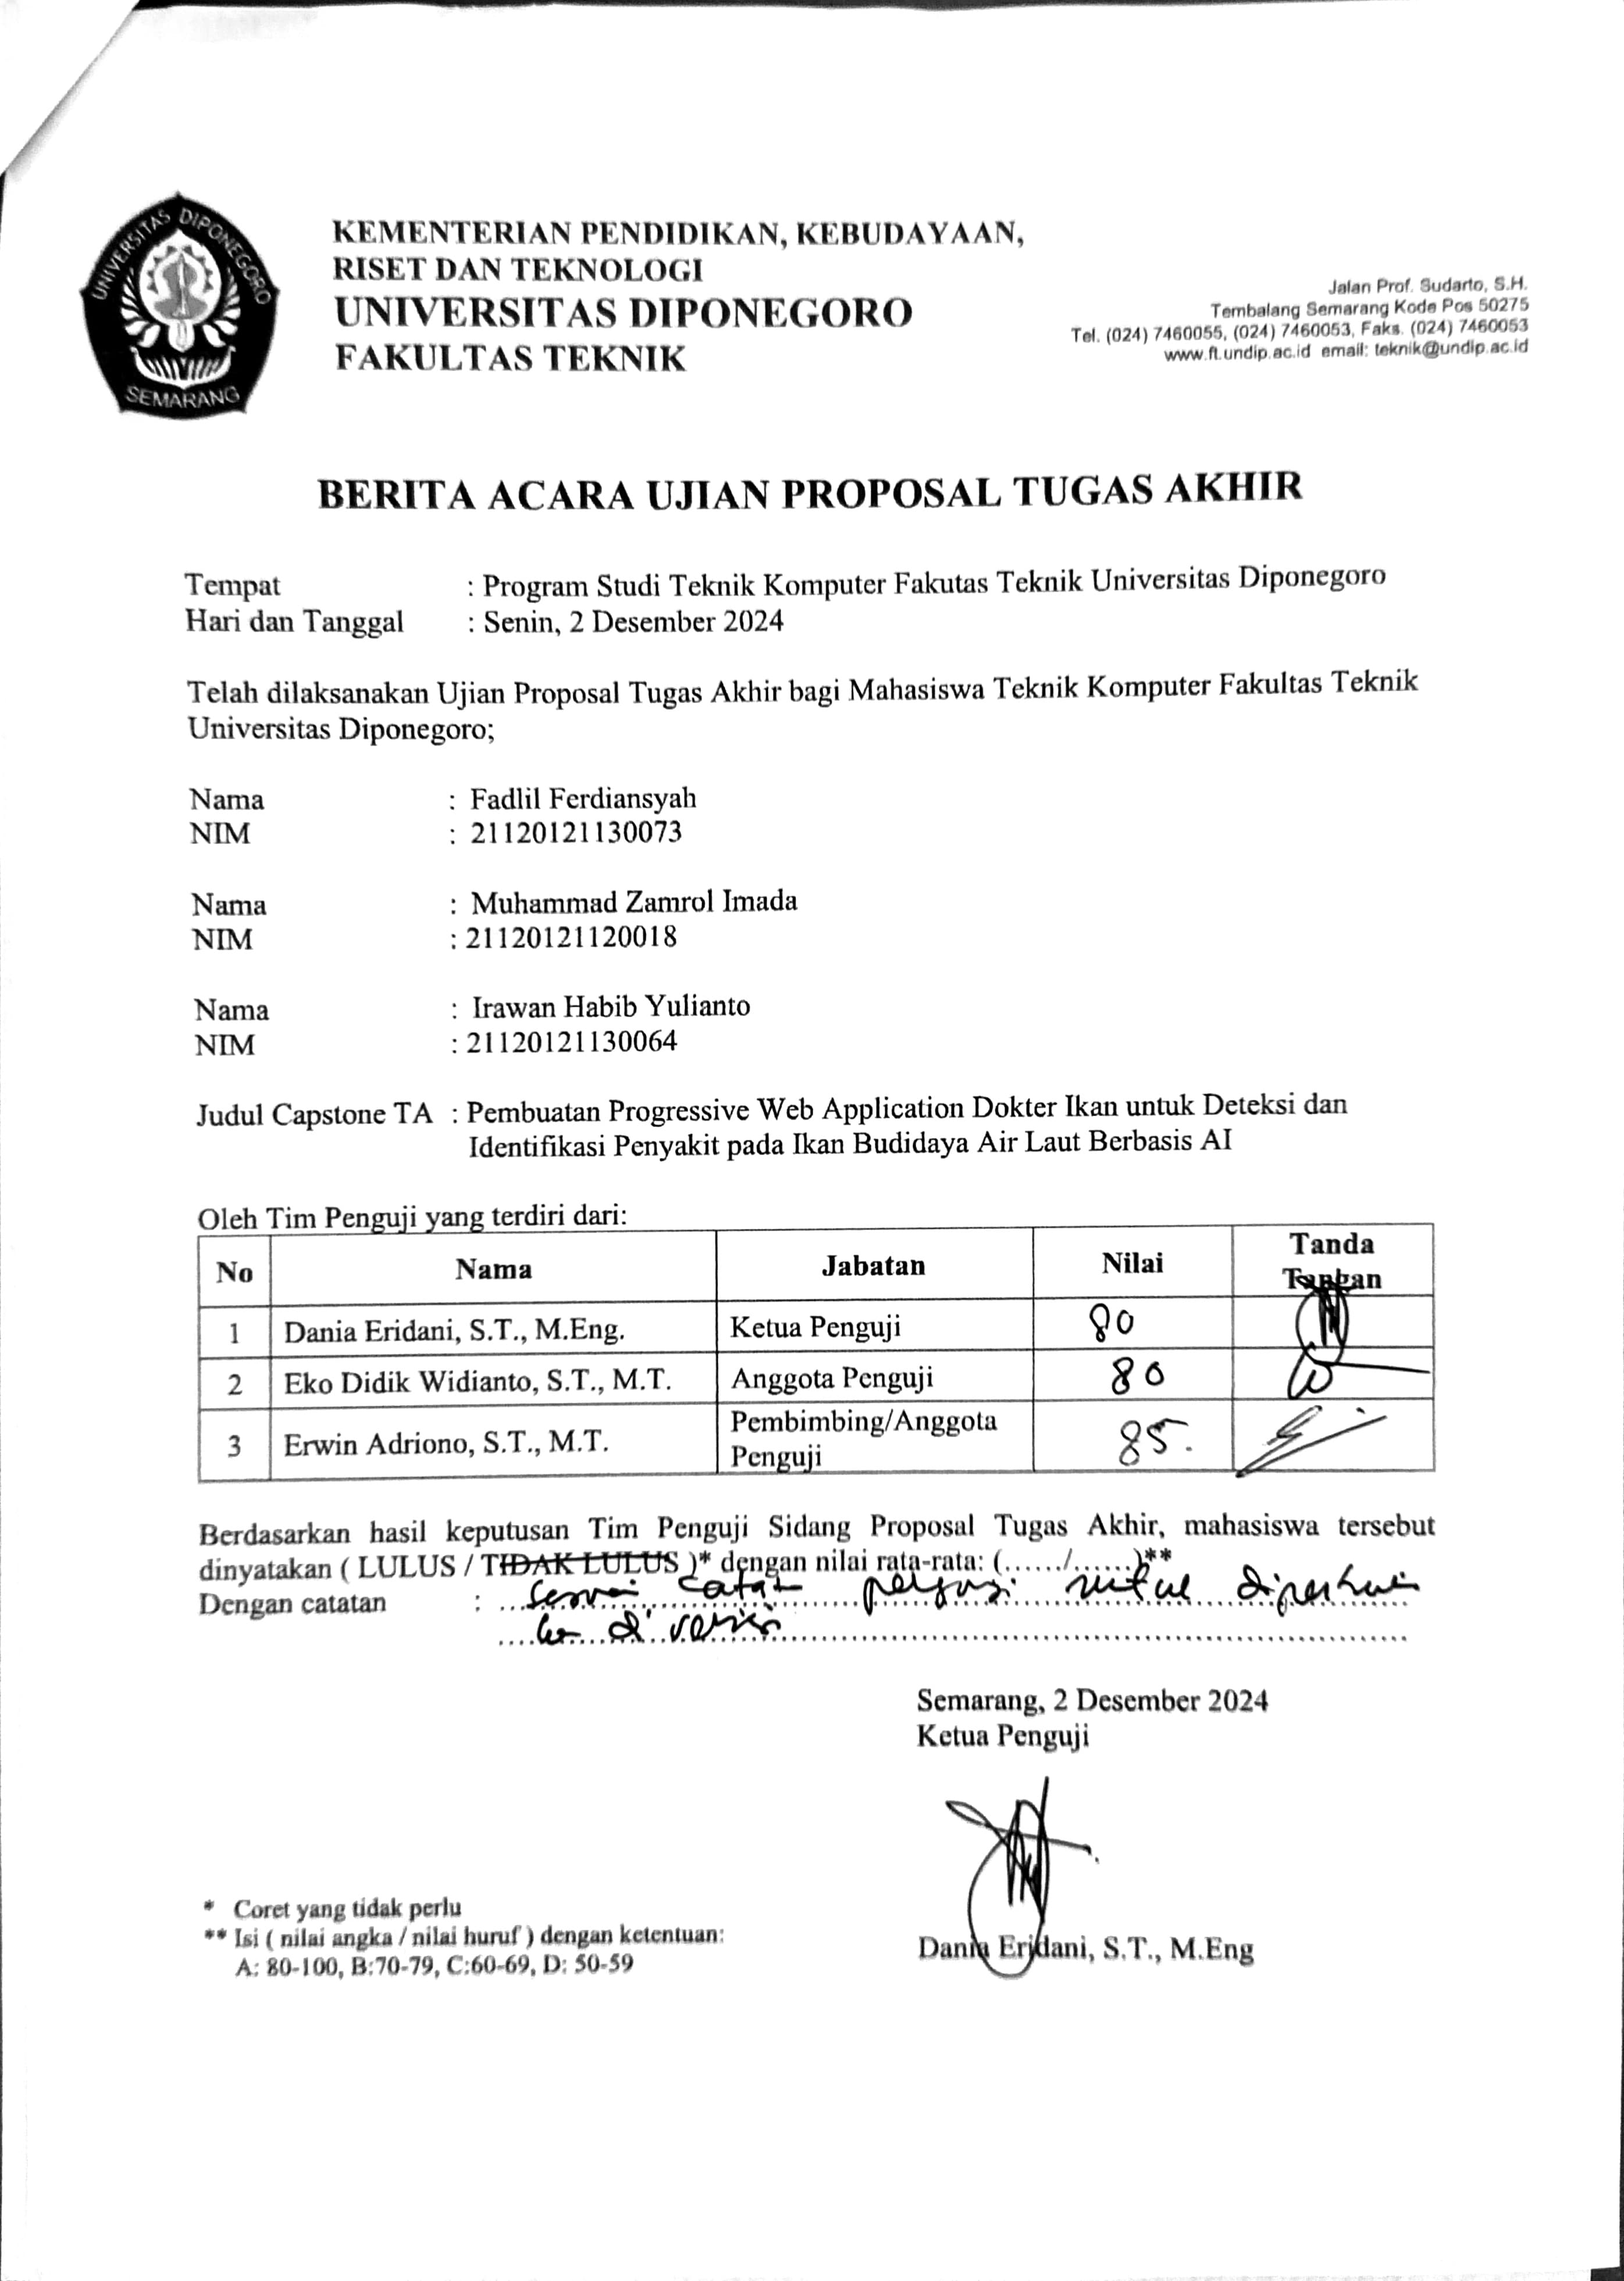 UNIVERSITAS DIPONEGORO
SEMARANG
KEMENTERIAN PENDIDIKAN, KEBUDAYAAN,
RISET DAN TEKNOLOGI
UNIVERSITAS DIPONEGORO
FAKULTAS TEKNIK
Jalan Prof. Sudarto, S.H.
Tembalang Semarang Kode Pos 50275
Tel. (024) 7460055, (024) 7460053, Faks. (024) 7460053
www.ft.undip.ac.id email: teknik@undip.ac.id
BERITA ACARA UJIAN PROPOSAL TUGAS AKHIR
Tempat : Program Studi Teknik Komputer Fakutas Teknik Universitas Diponegoro
Hari dan Tanggal : Senin, 2 Desember 2024
Telah dilaksanakan Ujian Proposal Tugas Akhir bagi Mahasiswa Teknik Komputer Fakultas Teknik
Universitas Diponegoro;
Nama : Fadlil Ferdiansyah
NIM : 21120121130073
Nama : Muhammad Zamrol Imada
NIM : 21120121120018
Nama : Irawan Habib Yulianto
NIM : 21120121130064
Judul Capstone TA : Pembuatan Progressive Web Application Dokter Ikan untuk Deteksi dan
Identifikasi Penyakit pada Ikan Budidaya Air Laut Berbasis AI
Oleh Tim Penguji yang terdiri dari:
No Nama Jabatan Nilai Tanda Tangan
1 Dania Eridani, S.T., M.Eng. Ketua Penguji 80
2 Eko Didik Widianto, S.T., M.T. Anggota Penguji 80
3 Erwin Adriono, S.T., M.T. Pembimbing/Anggota Penguji 85.
Berdasarkan hasil keputusan Tim Penguji Sidang Proposal Tugas Akhir, mahasiswa tersebut
dinyatakan ( LULUS / TIDAK LULUS )* dengan nilai rata-rata: (....../......)**
Dengan catatan : sesuai catatan penguji untuk
di revisi
Semarang, 2 Desember 2024
Ketua Penguji
Dania Eridani, S.T., M.Eng
* Coret yang tidak perlu
** Isi ( nilai angka / nilai huruf ) dengan ketentuan:
A: 80-100, B:70-79, C:60-69, D: 50-59